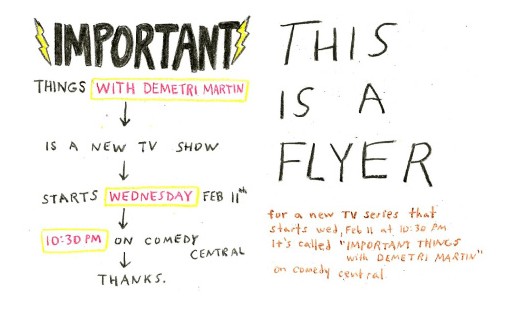 IMPORTANT
THINGS WITH DEMETRI MARTIN
IS A NEW TV SHOW
STARTS WEDNESDAY FEB 11th
10:30 PM ON COMEDY
CENTRAL
THANKS.
THIS
IS A
FLYER
for a new TV series that
starts wed, Feb 11 at 10:30 PM
It's called "IMPORTANT THINGS
with DEMETRI MARTIN"
on comedy central